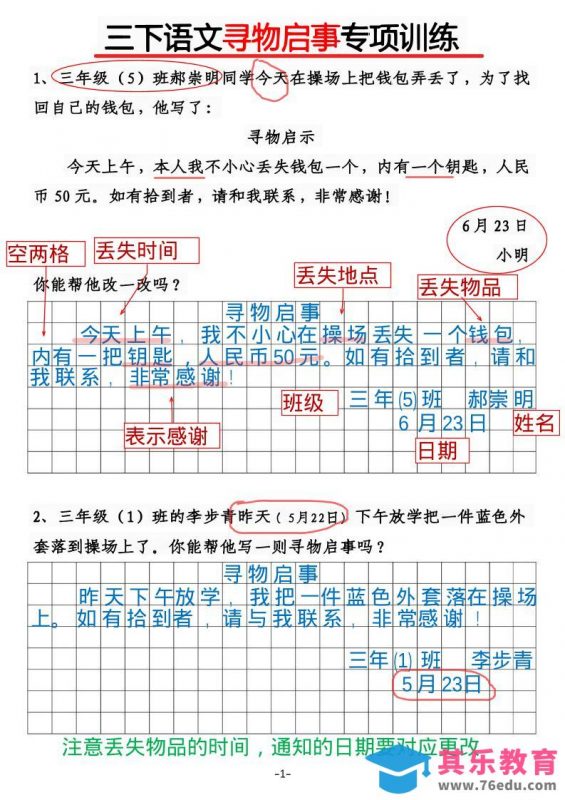 三下语文寻物启事专项训练
1、三年级（5）班郝崇明同学今天在操场上把钱包弄丢了，为了找
回自己的钱包，他写了：
寻物启示
今天上午，本人我不小心丢失钱包一个，内有一个钥匙，人民
币 50 元。如有拾到者，请和我联系，非常感谢！
6 月 23 日
小明
空两格
丢失时间
丢失地点
丢失物品
你能帮他改一改吗？
寻物启事
今天上午，我不小心在操场丢失一个钱包，
内有一把钥匙，人民币50元。如有拾到者，请和
我联系，非常感谢！
三年(5)班 郝崇明
6月23日
班级
姓名
表示感谢
日期
2、三年级（1）班的李步青昨天（5月22日）下午放学把一件蓝色外
套落到操场上了。你能帮他写一则寻物启事吗？
寻物启事
昨天下午放学，我把一件蓝色外套落在操场
上。如有拾到者，请与我联系，非常感谢！
三年(1)班 李步青
5月23日
注意丢失物品的时间，通知的日期要对应更改
-1-
其乐教育
www.76edu.com